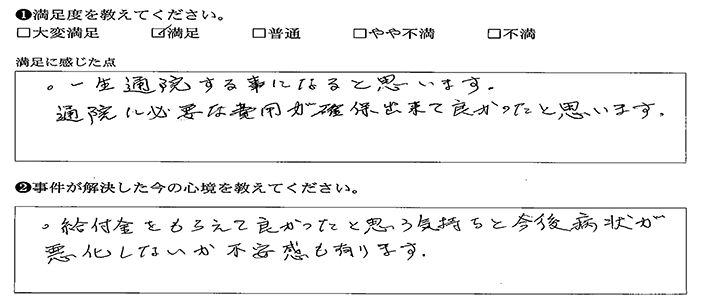 ❶満足度を教えてください。
□大変満足 ☑満足 □普通 □やや不満 □不満
満足に感じた点
。一生通院する事になると思います。
通院に必要な費用が確保出来て良かったと思います。
❷事件が解決した今の心境を教えてください。
。給付金をもらえて良かったと思う気持ちと今後病状が
悪化しないか不安感も有ります。